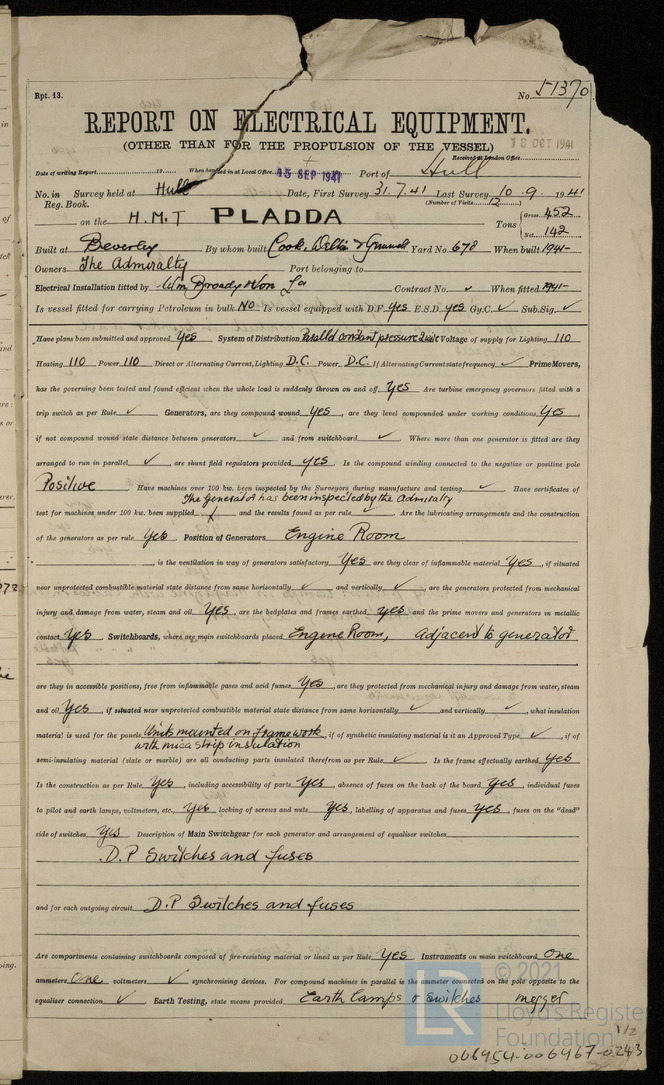 Rpt. 13.
No. 51370
REPORT ON ELECTRICAL EQUIPMENT.
(OTHER THAN FOR THE PROPULSION OF THE VESSEL)
18 OCT 1941
Received at London Office
Date of writing Report 19 When handed in at Local Office 15 SEP 1941 Port of Hull
No. in Survey held at Hull Date, First Survey 31.7.41 Last Survey 10.9.1941
Reg. Book. (Number of Visits 12)
on the H.M.T PLADDA Tons Gross 452 Net 142
Built at Beverley By whom built Cook, Welton & Gemmell Yard No. 678 When built 1941
Owners The Admiralty Port belonging to
Electrical Installation fitted by Wm Broady & Son Ld Contract No. ✓ When fitted 1941
Is vessel fitted for carrying Petroleum in bulk No Is vessel equipped with D.F. Yes E.S.D. yes Gy.C. ✓ Sub.Sig. ✓
Have plans been submitted and approved Yes System of Distribution Parallel constant pressure 2 wire Voltage of supply for Lighting 110
Heating 110 Power 110 Direct or Alternating Current, Lighting D.C. Power D.C. If Alternating Current state frequency ✓ Prime Movers,
has the governing been tested and found efficient when the whole load is suddenly thrown on and off Yes Are turbine emergency governors fitted with a
trip switch as per Rule ✓ Generators, are they compound wound yes, are they level compounded under working conditions Yes,
if not compound wound state distance between generators ✓ and from switchboard ✓ Where more than one generator is fitted are they
arranged to run in parallel ✓, are shunt field regulators provided yes. Is the compound winding connected to the negative or positive pole
Positive Have machines over 100 kw. been inspected by the Surveyors during manufacture and testing ✓ Have certificates of
The Generator has been inspected by the Admiralty
test for machines under 100 kw. been supplied and the results found as per rule ✓ Are the lubricating arrangements and the construction
of the generators as per rule Yes Position of Generators Engine Room
, is the ventilation in way of generators satisfactory Yes are they clear of inflammable material Yes, if situated
near unprotected combustible material state distance from same horizontally ✓ and vertically ✓, are the generators protected from mechanical
injury and damage from water, steam and oil Yes, are the bedplates and frames earthed yes and the prime movers and generators in metallic
contact Yes Switchboards, where are main switchboards placed Engine Room, adjacent to generator
are they in accessible positions, free from inflammable gases and acid fumes Yes, are they protected from mechanical injury and damage from water, steam
and oil Yes, if situated near unprotected combustible material state distance from same horizontally ✓ and vertically ✓, what insulation
material is used for the panels Units mounted on framework, if of synthetic insulating material is it an Approved Type ✓, if of
with mica strip insulation
semi-insulating material (slate or marble) are all conducting parts insulated therefrom as per Rule ✓ Is the frame effectually earthed Yes
Is the construction as per Rule Yes, including accessibility of parts Yes, absence of fuses on the back of the board Yes, individual fuses
to pilot and earth lamps, voltmeters, etc., Yes locking of screws and nuts Yes, labelling of apparatus and fuses Yes, fuses on the "dead"
side of switches Yes Description of Main Switchgear for each generator and arrangement of equaliser switches
D.P Switches and fuses
and for each outgoing circuit D.P Switches and fuses
Are compartments containing switchboards composed of fire-resisting material or lined as per Rule Yes Instruments on main switchboard One
ammeters One voltmeters ✓ synchronising devices. For compound machines in parallel is the ammeter connected on the pole opposite to the
equaliser connection ✓ Earth Testing, state means provided Earth Lamps & switches megger
© 2021
LR
Lloyd's Register
Foundation
1/2
006954-006967-0243